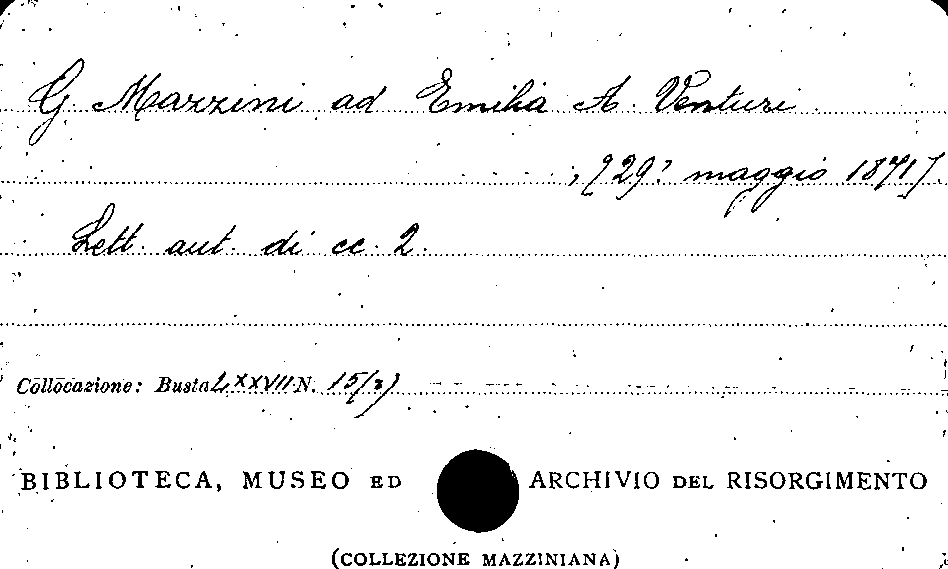 G. Mazzini ad Emilia A. Venturi.
, [29? maggio 1871].
Lett. aut. di cc. 2.
Collocazione: Busta LXXVII N. 15/3)
BIBLIOTECA, MUSEO ED ARCHIVIO DEL RISORGIMENTO
(COLLEZIONE MAZZINIANA)